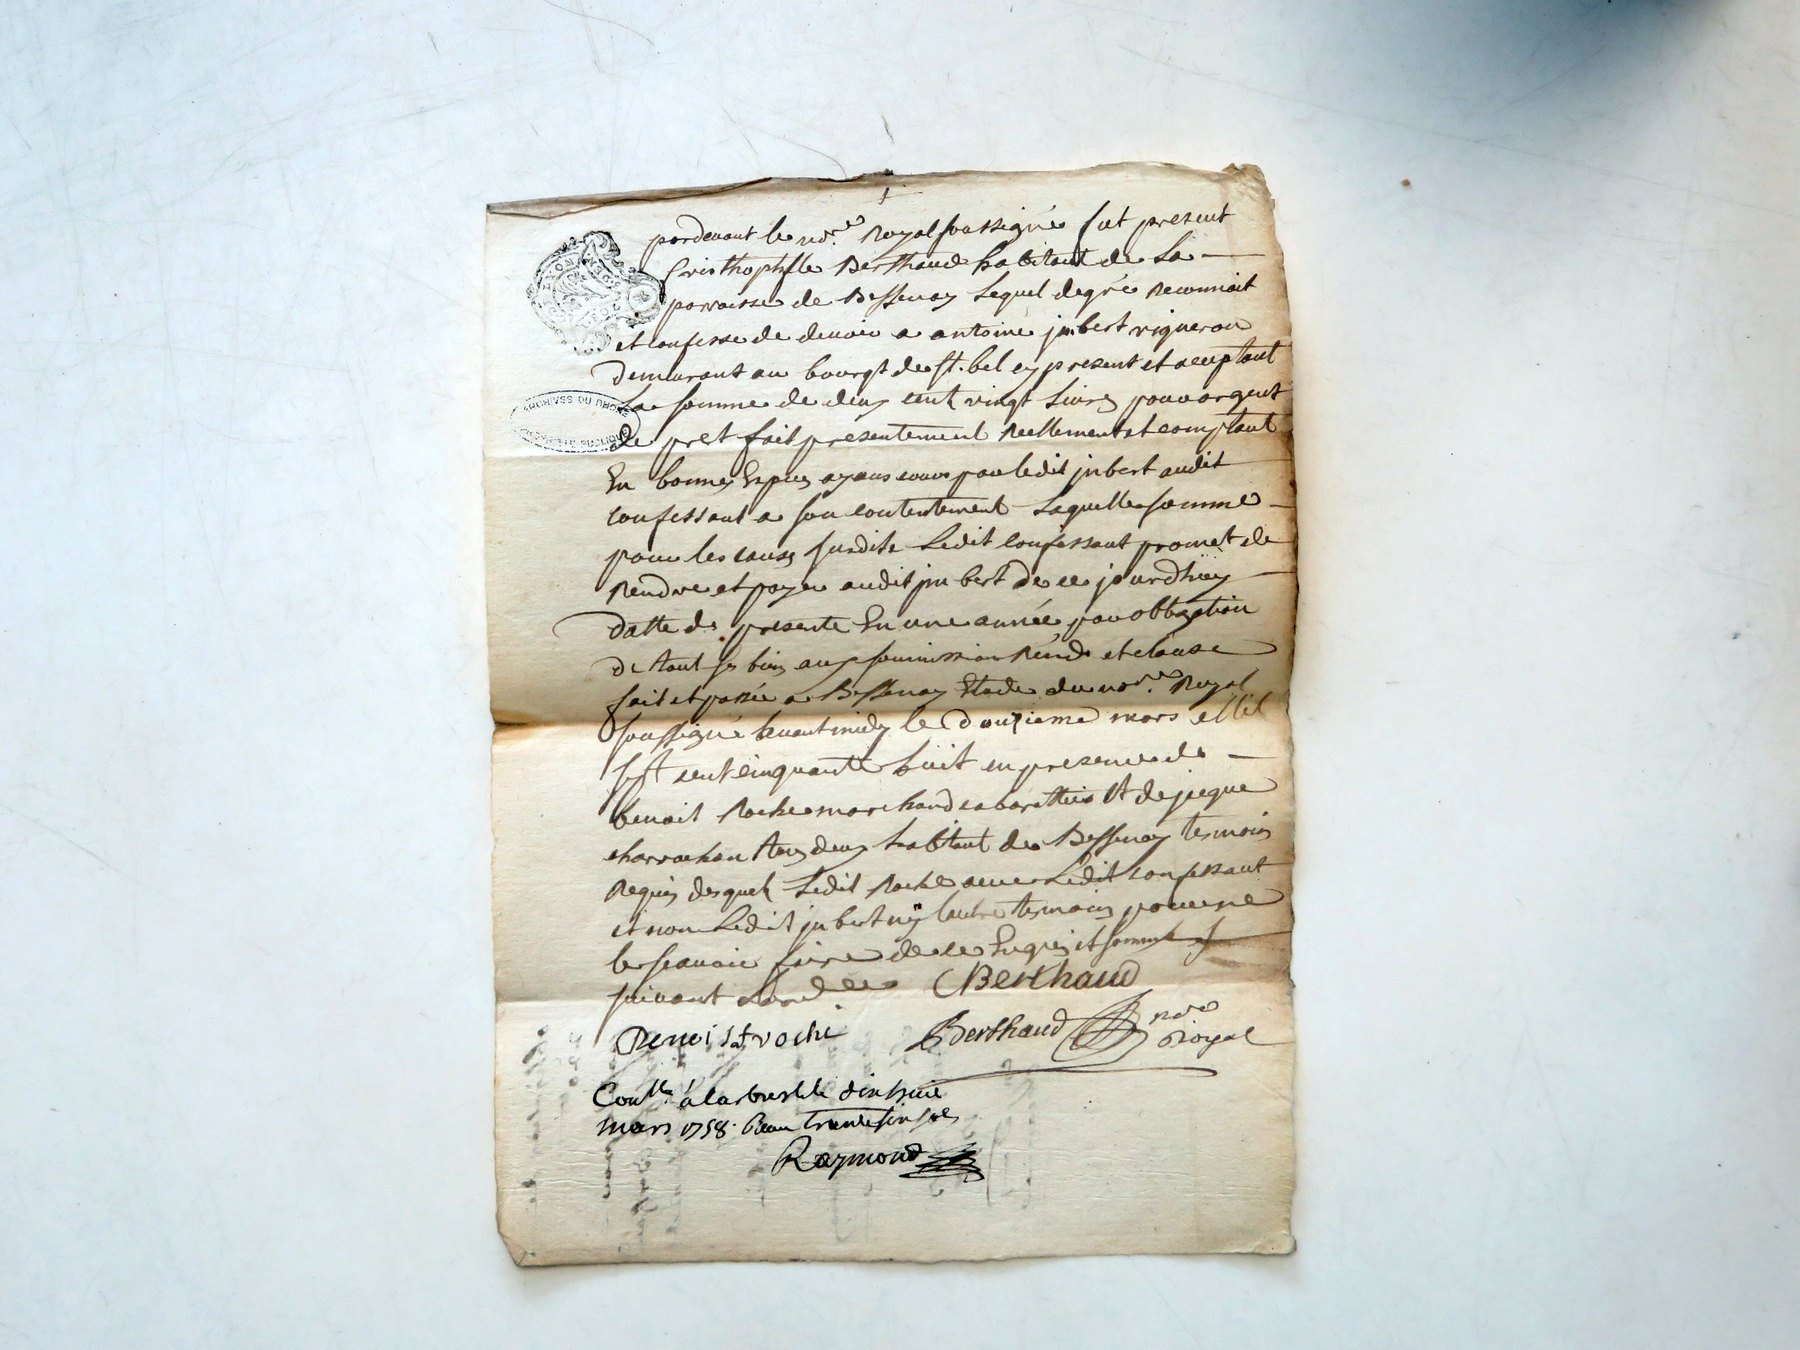 pardevant le nore Royal soussigné fut present
Cristhophle Berthaud habitant de La
parroisse de Bessenay Lequel degré Reconnoit
et confesse de devoir a antoine jmbert vigneron
Demeurant au bourgt de st. bel ey present et aceptant
La somme de deux cent vingt Livres pour argent
ARCHIVES DU RHONE
de pret fait presentement Reellement et comptant
En bonnes Espèces ayans cours par ledit jnbert audit
confessant a son contentement Laquelle somme
pour les causes susdite Ledit confessant promet de
Rendre et payer audit jnbert de ce jourdhuy
datte des presente En une année par obbligation
de tout ses biens aux soumission Rends et clause
fait et passée a Bessenay Etude du nore Royal
soussigné avant midy le douzieme mars mil
sept cent cinquante huit en presence de
benoit Roche marchand cabarettier et de jacque
charrachon tous deux habitant de Bessenay temoins
Requis desquels Ledit Roche avec Ledit confessant
et non Ledit jnbert ny lautre temoins pour ne
le scavoir faire de ce Enquis et sommés
suivant Lord.ce CBerthaud
Benoist roche Berthaud nore Royal
Conllé à larbresle
mars 1758. Receu trente six sols
Raymond